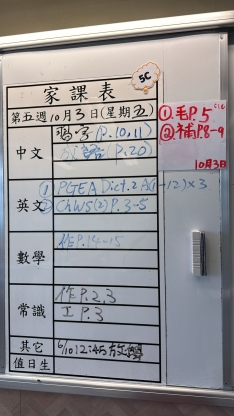 5C
家課表
第五週10月3日(星期五)
中文
(P.10,11)
P.20)
①毛P.5
②補P8-9
10月3日
英文
① PGEA Dict.2 A(1-12)×3
② ChWS(2)P.3-5
數學
作P.14-15
常識
作P.2,3
工P.3
其它
6/10 12:45放學
值日生